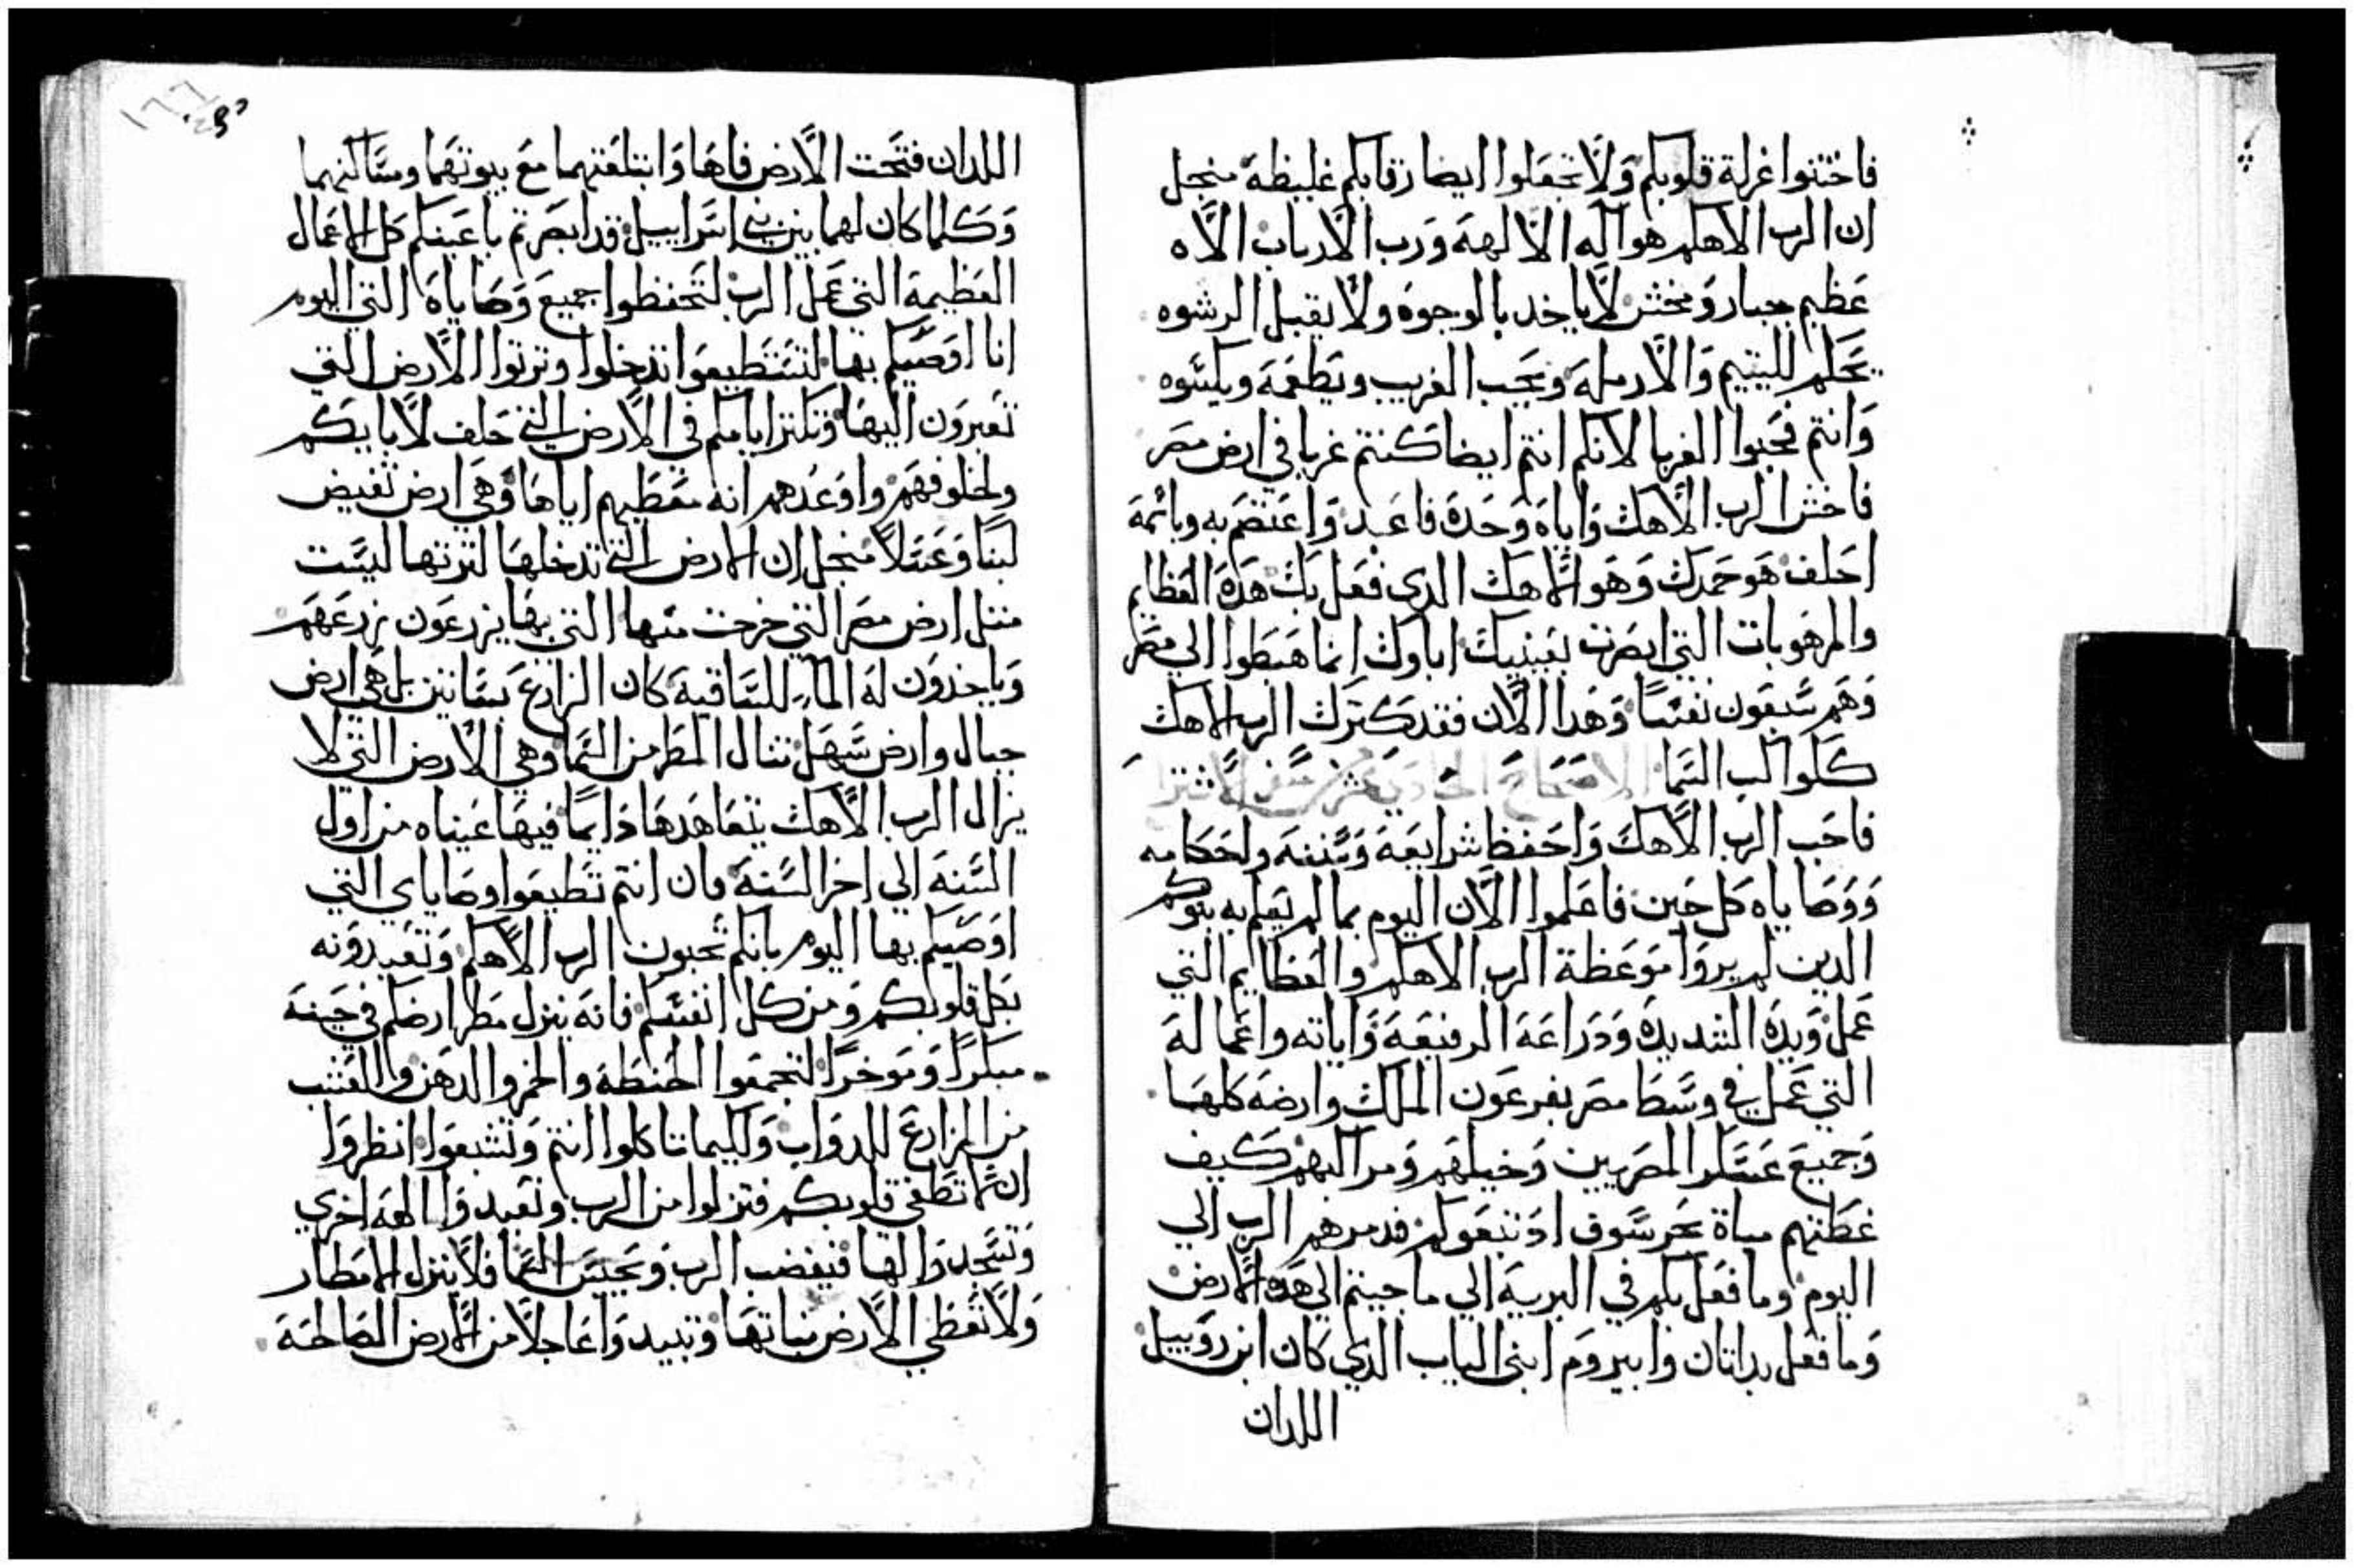 فاختنوا غرلة قلوبكم ولا تجعلوا ايضا رقابكم غليظة منجل
ان الرب الاهكم هو اله الالهة ورب الارباب الاه
عظيم جبار ومخشى لا ياخد بالوجوه ولا يقبل الرشوه
يحكم لليتيم والارملة ويحب الغريب ويطعمه ويكسوه
وانتم فحبوا الغربا لانكم انتم ايضا كنتم غربا في ارض مصر
فاخش الرب الاهك واياه وحده فاعبد واعتصم به وبائمه
احلف هو حمدك وهو الاهك الدي فعل بك هده العظايم
والمرهوبات التي ابصرت بعينيك اباوك انما هبطوا الي مصر
وهم سبعون نفسا وهدا الان فقد كترك الرب الاهك
ككواكب السما الاصحاح الحادي عشر سفر الاستتنا
فاحب الرب الاهك واحفظ شرايعه وسننه واحكامه
ووصاياه كل حين فاعلموا الان اليوم بما لم يعلم به بنوكم
الدين لم يروا موعظة الرب الاهكم والعظايم التي
عمل ويده الشديده ودراعه الرفيعة واياته واعماله
التي عمل في وسط مصر بفرعون الملك وارضه كلها
وجميع عسكر المصريين وخيلهم ومراكبهم كيف
غطتهم مياة بحر سوف اد تبعوكم فدمرهم الرب الي
اليوم وما فعل بكم في البرية الي ما جيتم الي هده الارض
وما فعل بداتان وابيروم ابني الياب الدي كان ابن روبييل
اللدان
اللدان فتحت الارض فاها وابتلعتهما مع بيوتهما ومساكنهما
وكلما كان لهما بين بني اسراييل قد ابصرتم باعينكم كل الاعمال
العظيمة التي عمل الرب لتحفظوا جميع وصاياه التي اليوم
انا اوصيكم بها لتستطيعوا تدخلوا وترتوا الارض التي
تعبرون اليها وتكتر ايامكم في الارض التي حلف لابايكم
ولخلوفهم واوعدهم انه معطيهم اياها وهي ارض تفيض
لبنا وعسلا منجل ان الارض التي تدخلها لترتها ليست
متل ارض مصر التي خرجت منها التي بها يزرعون زرعهم
وياخدون له الما للساقية كان الزارع بساتين بل هي ارض
جبال وارض سهل تنال المطر من السما وهي الارض التي لا
يزال الرب الاهك يتعاهدها دايما فيها عيناه من اول
السنة الي اخر السنة فان انتم تطيعوا وصاياي التي
اوصيكم بها اليوم بانكم تحبون الرب الاهكم وتعبدونه
بكل قلوبكم ومن كل انفسكم فانه ينزل مطر ارضكم في حينه
مبكرا وموخرا لتجمعوا الحنطة والخمر والدهن والعشب
من المزارع للدواب ولكيما تاكلوا انتم وتشبعوا انظروا
ان لا تطغى قلوبكم فتزلوا من الرب وتعبدوا الهة اخري
وتسجدوا لها فيغضب الرب ويحبس السما فلا ينزل الامطار
ولا تعطي الارض نباتها وتبيدوا عاجلا من الارض الصالحة